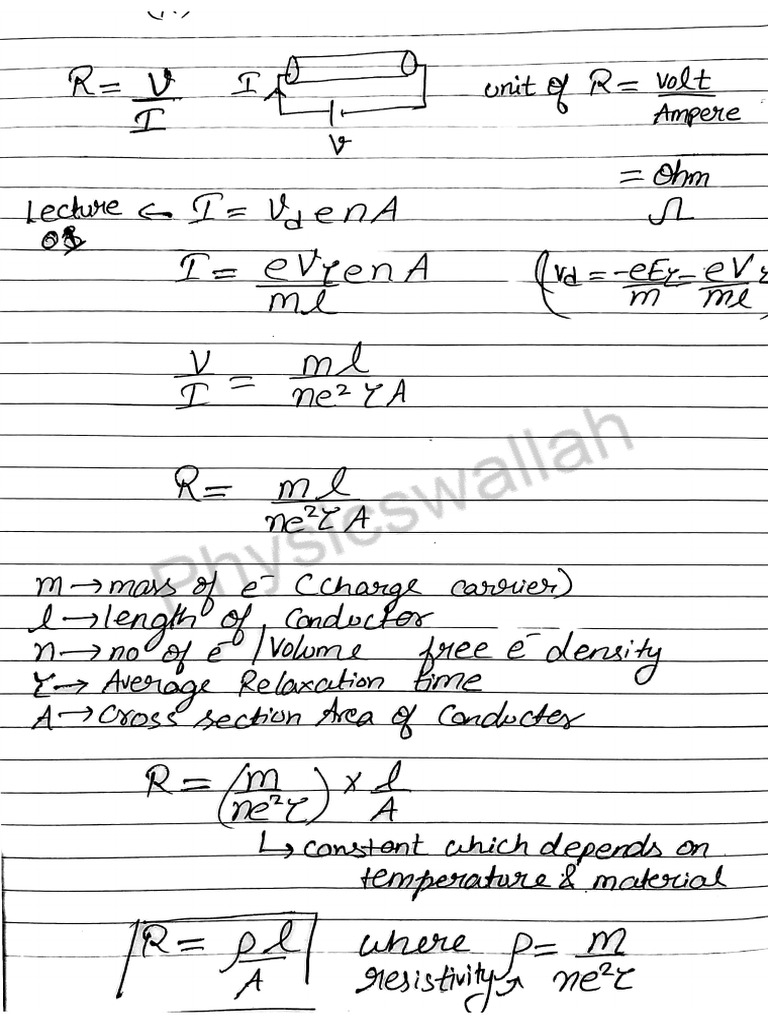 R = V/I I V unit of R = Volt/Ampere
= Ohm
Ω
Lecture 03 ← I = Vd e n A
I = eVτenA/ml (Vd = -eEτ/m = eVτ/ml)
V/I = ml/ne²τA
R = ml/ne²τA
Physicswallah
m → mass of e⁻ (charge carrier)
l → length of conductor
n → no of e⁻/Volume free e⁻ density
τ → Average Relaxation time
A → Cross section Area of Conductor
R = (m/ne²τ) × l/A
↳ constant which depends on
temperature & material
R = ρl/A where ρ = m/ne²τ
resistivity